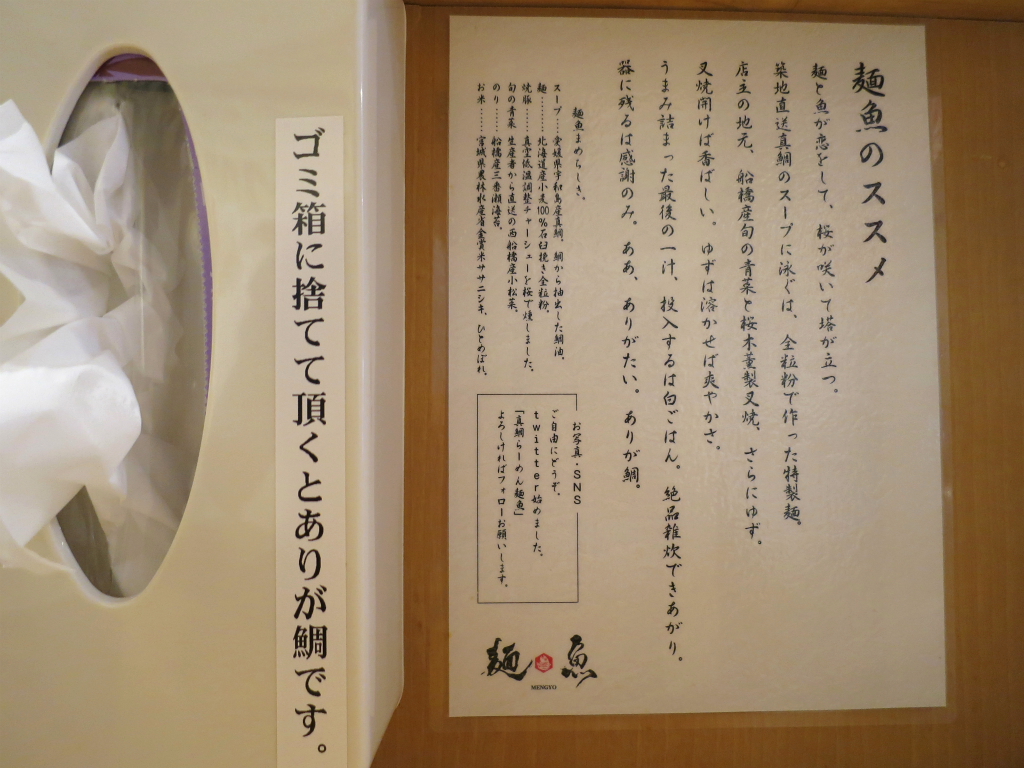 麺魚のススメ
麺と魚が恋をして、桜が咲いて塔が立つ。
築地直送真鯛のスープに泳ぐは、全粒粉で作った特製麺。
店主の地元、船橋産旬の青菜と桜木薫製叉焼、さらにゆず。
叉焼開けば香ばしい。ゆずは溶かせば爽やかさ。
うまみ詰まった最後の一汁、投入するは白ごはん。絶品雑炊できあがり。
器に残るは感謝のみ。ああ、ありがたい。ありが鯛。
麺魚まめちしき。
スープ…愛媛県宇和島産真鯛、鯛から抽出した鯛油。
麺………北海道産小麦100%石臼挽き全粒粉。
焼豚……真空低温調整チャーシューを桜で燻しました。
旬の青菜 生産者から直送の西船橋産小松菜。
のり……船橋産三番瀬海苔。
お米……宮城県農林水産省金賞米ササニシキ、ひとめぼれ。
お写真・SNS
ご自由にどうぞ。
twitter始めました。
「真鯛らーめん麺魚」
よろしければフォローお願いします。
麺魚
MENGYO
ゴミ箱に捨てて頂くとありが鯛です。